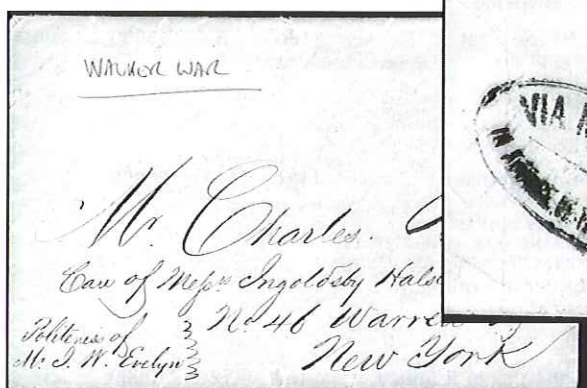 WALKER WAR
Mr. Charles
Care of Messrs Ingoldsby Hals
No 46 Warren
New York
Politeness of
Mr. J. W. Evelyn
VIA